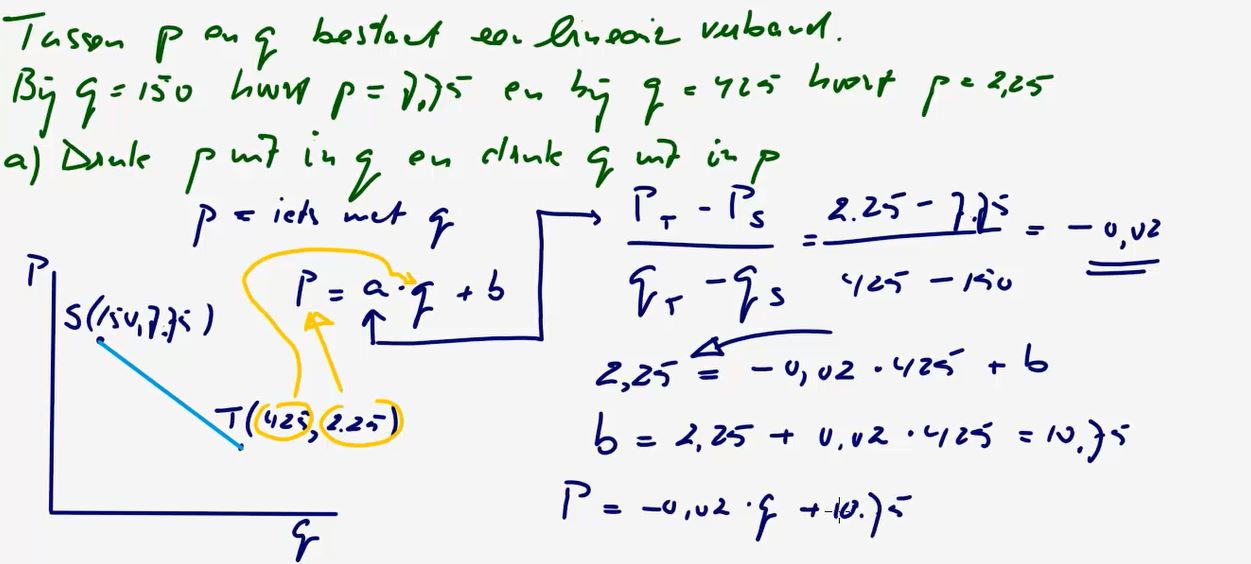 Tussen p en q bestaat een lineair verband.
Bij q = 150 hoort p = 7,75 en bij q = 425 hoort p = 2,25
a) Druk p uit in q en druk q uit in p
p = iets met q
P
S(150,7.75)
P = a·q + b
T(425, 2.25)
q
P_T - P_S / q_T - q_S = 2.25 - 7.75 / 425 - 150 = -0,02
2,25 = -0,02 · 425 + b
b = 2,25 + 0,02 · 425 = 10.75
P = -0,02 · q + 10.75